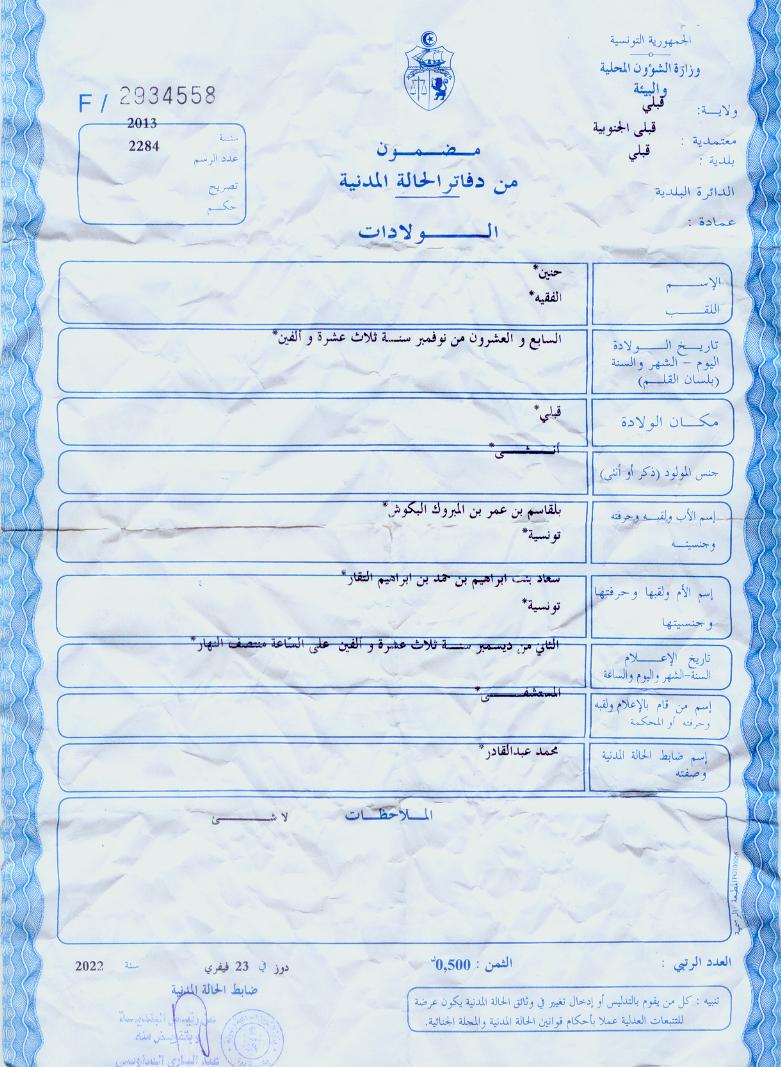 الجمهورية التونسية
وزارة الشؤون المحلية
والبيئة
ولايـــة: قبلي
معتمدية : قبلى الجنوبية
بلدية : قبلي
الدائرة البلدية
عمادة :
F/ 2934558
سنــة 2013
عدد الرسم 2284
تصريح
حكـــم
مـضـمـــون
من دفاتر الحالة المدنية
الـــــــولادات
الإســـــم حنين*
اللقـــــب الفقيه*
تاريـــخ الــــــولادة السابع و العشرون من نوفمبر سنـــة ثلاث عشرة و ألفين*
اليوم – الشهر والسنة
(بلسان القلـــم)
مكـــان الولادة قبلي*
جنس المولود (ذكر أو أنثى) أنـــثـــــى*
إسم الأب ولقبـــه وحرفته بلقاسم بن عمر بن المبروك البكوش*
وجنسيتـــه تونسية*
إسم الأم ولقبها وحرفتها سعاد بنت ابراهيم بن حمد بن ابراهيم النقار*
وجنسيتها تونسية*
تاريخ الإعـــــلام الثاني من ديسمبر سنـــة ثلاث عشرة و ألفين على الساعة منتصف النهار*
السنة-الشهر واليوم والساعة
إسم من قام بالإعلام ولقبه المستشفـــــى*
وحرفته أو المحكمة
إسم ضابط الحالة المدنية محمد عبدالقادر*
وصفته
المــلاحظــات
لا شـــــئ
العدد الرتبي :
الثمن : 0,500د
دوز في 23 فيفري سنة 2022
ضابط الحالة المدنية
تنبيه : كل من يقوم بالتدليس أو إدخال تغيير في وثائق الحالة المدنية يكون عرضة
للتتبعات العدلية عملا بأحكام قوانين الحالة المدنية والمجلة الجنائية.